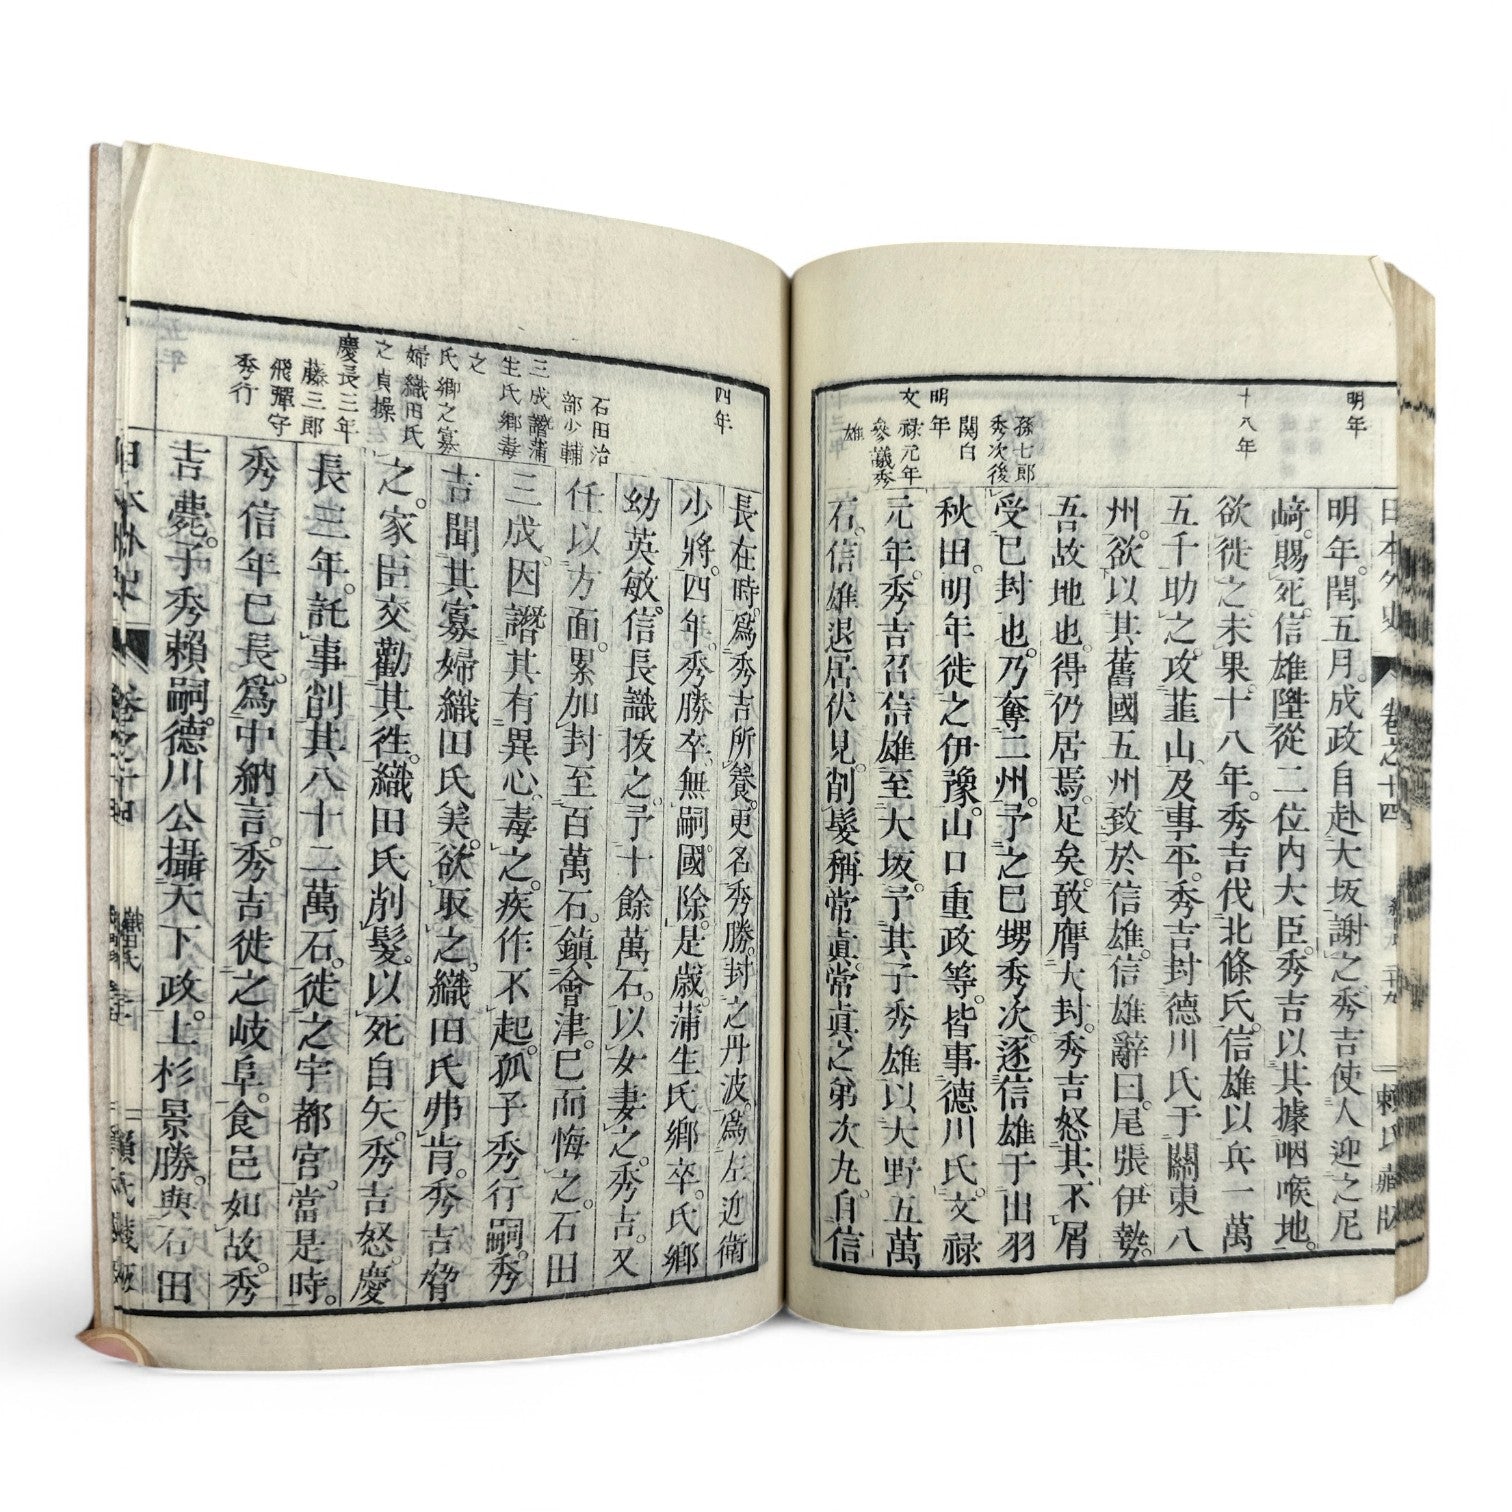 日本外史
卷之十四
賴氏藏版
明年
十八年
孫七郎
秀次後
関白
明年
文祿元年
參議秀
雄
明年。閏五月。成政自赴大坂謝之。秀吉使人迎之尼
崎。賜死。信雄陞從二位內大臣。秀吉以其據咽喉地。
欲徙之。未果。十八年。秀吉伐北條氏。信雄以兵一萬
五千助之。攻韮山。及事平。秀吉封德川氏于關東八
州。欲以其舊國五州致於信雄。信雄辭曰。尾張伊勢。
吾故地也。得仍居焉。足矣。敢膺大封。秀吉怒其不屑
受已封也。乃奪二州。予之已甥秀次。逐信雄于出羽
秋田。明年徙之伊豫。山口重政等。皆事德川氏。文祿
元年。秀吉召信雄至大坂。予其子秀雄以大野五萬
石。信雄退居伏見。削髮稱常眞。常眞之弟次丸。自信
四年
石田治
部少輔
三成譖蒲
生氏鄉毒
之
氏鄉之寡
婦織田氏
之貞操
慶長三年
藤三郎
飛驒守
秀行
長在時。爲秀吉所養。更名秀勝。封之丹波。爲左近衛
少將。四年。秀勝卒。無嗣。國除。是歲蒲生氏鄉卒。氏鄉
幼英敏。信長識拔之。予十餘萬石。以女妻之。秀吉又
任以方面。累加封至百萬石。鎭會津。已而悔之。石田
三成。因譖其有異心。毒之。疾作不起。孤子秀行嗣。秀
吉聞其寡婦織田氏美。欲取之。織田氏弗肯。秀吉脅
之。家臣交勸其徃。織田氏削髮。以死自矢。秀吉怒。慶
長三年。託事削其八十二萬石。徙之宇都宮。當是時。
秀信年已長。爲中納言。秀吉徙之岐阜。食邑如故。秀
吉薨。子秀賴嗣。德川公攝天下政。上杉景勝。與石田
日本外史
卷之十四
賴氏藏版